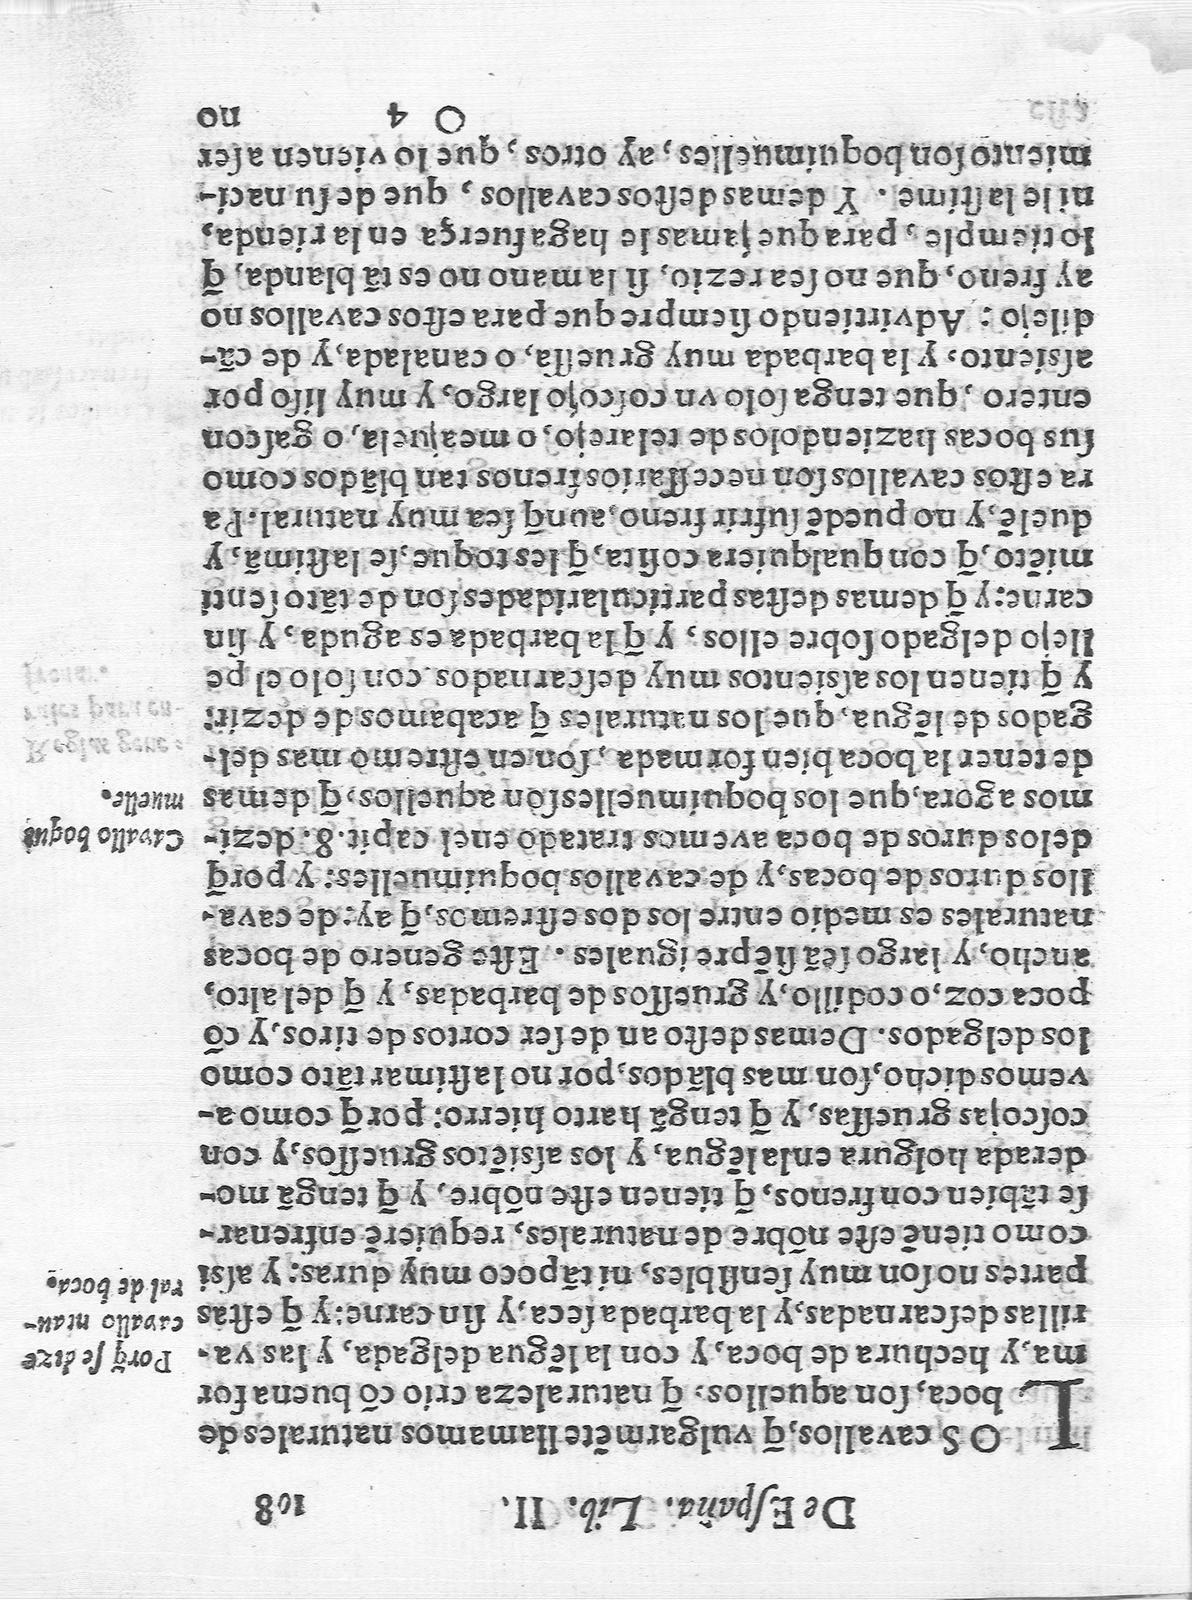 De España. Lib. II. 108
LOS cavallos, q̃ vulgarmẽte llamamos naturales de
boca, ſon aquellos: q̃ naturaleza crio cõ buena for
ma, y hechura de boca, y con la lẽgua delgada, y las va-
rillas deſcarnadas, y la barbada ſeca, y ſin carne: y q̃ eſtas
partes no ſon muy ſenſibles, ni tãpoco muy duras: y aſsi
como tienẽ eſte nõbre de naturales, requierẽ enfrenar-
ſe tãbien con frenos, q̃ tienen eſte nõbre, y q̃ tengã mo-
derada holgura en la lẽgua, y los aſsiẽtos grueſſos, y con
coſcojas grueſſas, y q̃ tengã harto hierro: porq̃ como a-
vemos dicho, ſon mas blãdos, por no laſtimar tãto como
los delgados. Demas deſto an de ſer cortos de tiros, y cõ
poca coz, o codillo, y grueſſos de barbadas, y q̃ del alto,
ancho, y largo ſeã ſiẽpre iguales. Eſte genero de bocas
naturales es medio entre los dos eſtremos, q̃ ay: de cava-
llos duros de bocas, y de cavallos boquimuelles: y porq̃
de los duros de boca avemos tratado en el capit. 8. dezi-
mos agora, que los boquimuelles ſon aquellos, q̃ demas
de tener la boca bien formada, ſon en eſtremo mas del-
gados de lẽgua, que los naturales q̃ acabamos de dezir:
y q̃ tienen los aſsientos muy deſcarnados. con ſolo el pe
llejo delgado ſobre ellos, y q̃ la barbada es aguda, y ſin
carne: y q̃ demas deſtas particularidades ſon de tãto ſenti
miẽto, q̃ con qualquiera coſita, q̃ les toque, ſe laſtimã, y
duelẽ, y no puedẽ ſufrir freno, aunq̃ ſea muy natural: Pa
ra eſtos cavallos ſon neceſſarios frenos tan blãdos como
ſus bocas haziendolos de telarejo, o meajuela, o gaſcon
entero, que tenga ſolo vn coſcojo largo, y muy liſo por
aſsiento, y la barbada muy grueſſa, o canalada, y de cã-
dilejo: Advirtiendo ſiempre que para eſtos cavallos no
ay freno, que no ſea rezio, ſi la mano no es tã blanda, q̃
lo tiemple, para que jamas le haga fuerça en la rienda,
ni le laſtime. Y demas deſtos cavallos, que de ſu naci-
miento ſon boquimuelles, ay otros, que lo vienen a ſer
O 4 no
Porq̃ ſe dize
cavallo natu-
ral de boca.
Cavallo boqui
muelle.